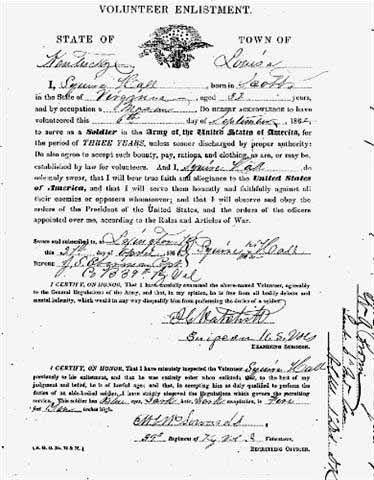 VOLUNTEER ENLISTMENT.
STATE OF TOWN OF
Kentucky Louisa
I, Squire Hall born in Scott
in the State of Virginia aged 32 years,
and by occupation a Mason Do HEREBY ACKNOWLEDGE to have
volunteered this 6th day of September 1862,
to serve as a Soldier in the Army of the United States of America, for
the period of THREE YEARS, unless sooner discharged by proper authority:
Do also agree to accept such bounty, pay, rations, and clothing, as are, or may be,
established by law for volunteers. And I, Squire Hall do
solemnly swear, that I will bear true faith and allegiance to the United States
of America, and that I will serve them honestly and faithfully against all
their enemies or opposers whomsoever; and that I will observe and obey
the orders of the President of the United States, and the orders of the officers
appointed over me, according to the Rules and Articles of War.
Sworn and subscribed to, at Lexington Ky
this day of 186 Squire Hall
BEFORE
39th Ky Vol
I CERTIFY, ON HONOR, That I have carefully examined the above-named Volunteer, agreeably
to the General Regulations of the Army, and that, in my opinion, he is free from all bodily defects and
mental infirmity, which would in any way disqualify him from performing the duties of a soldier.
Surgeon U.S. Vols
EXAMINING SURGEON.
I CERTIFY, ON HONOR, That I have minutely inspected the Volunteer Squire Hall
previously to his enlistment, and that he was entirely sober when enlisted; that, to the best of my
judgment and belief, he is of lawful age; and that, in accepting him as duly qualified to perform the
duties of an able-bodied soldier, I have strictly observed the Regulations which govern the recruiting
service. This soldier has Blue eyes, Dark hair, Dark complexion, is Five
feet inches high.
39th Regiment of Ky Vol Volunteers,
RECRUITING OFFICER.